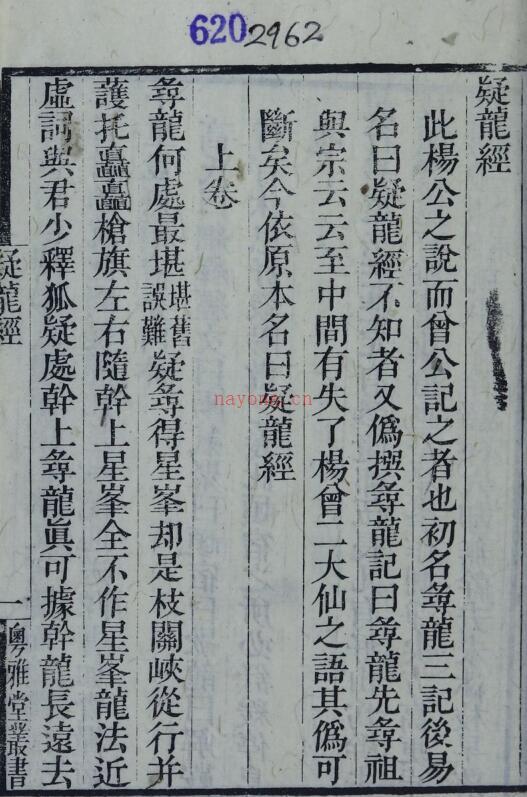 620 2962
疑龍經
此楊公之說而曾公記之者也初名尋龍三記後易
名曰疑龍經不知者又偽撰尋龍記曰尋龍先尋祖
與宗云云至中間有失了楊曾二大仙之語其偽可
斷矣今依原本名曰疑龍經
上卷
尋龍何處最堪堪舊誤難疑尋得星峯却是枝關峽從行并
護托矗矗槍旗左右隨幹上星峯全不作星峯龍法近
虛詞與君少釋狐疑處幹上尋龍眞可據幹龍長遠去
疑龍經
一
粵雅堂叢書
nayona.cn